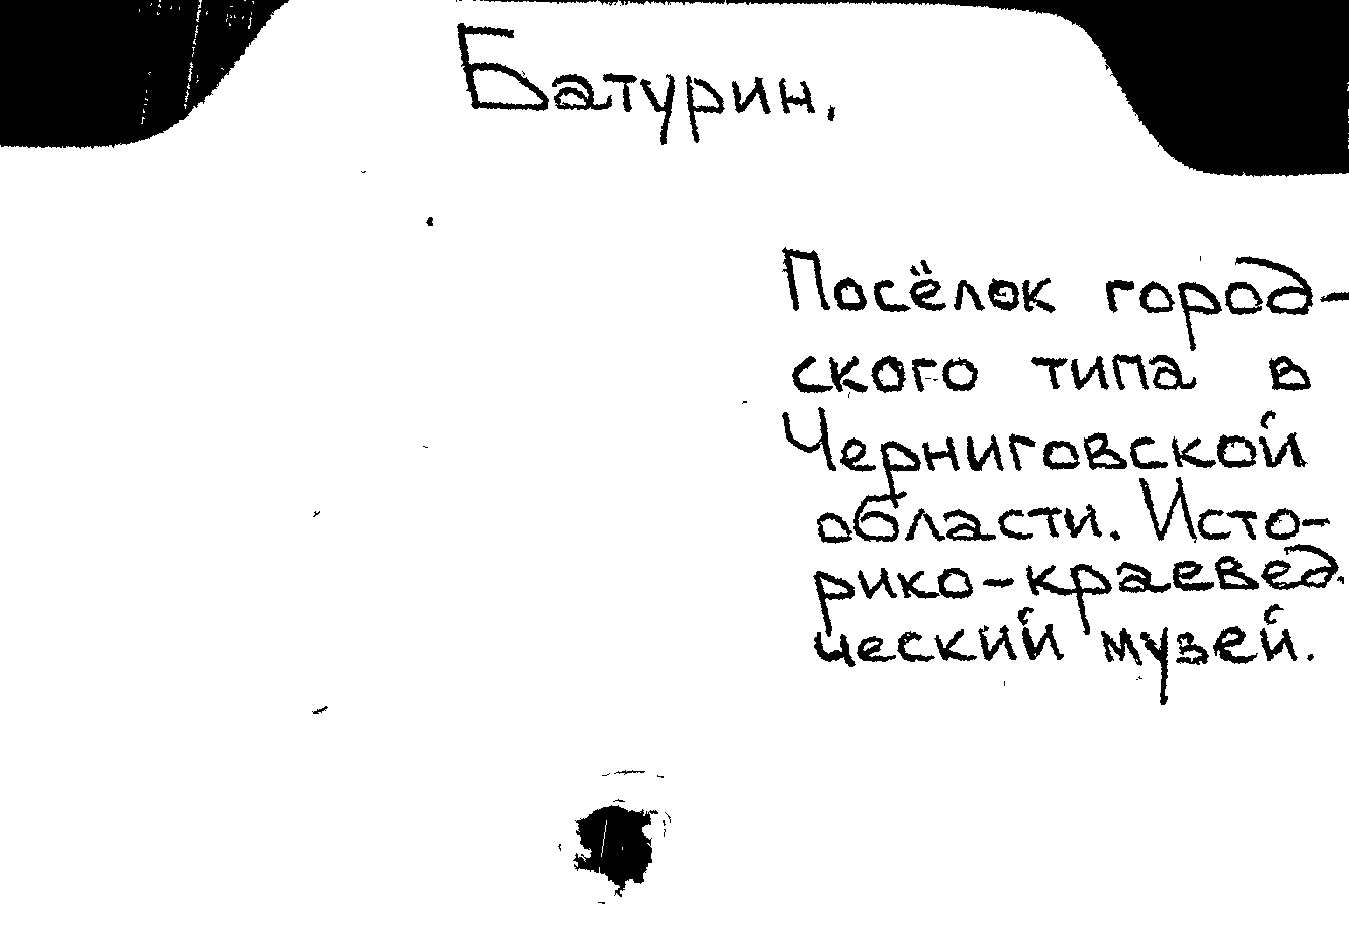 Батурин.
Посёлок город-
ского типа в
Черниговской
области. Исто-
рико-краевед.
ческий музей.